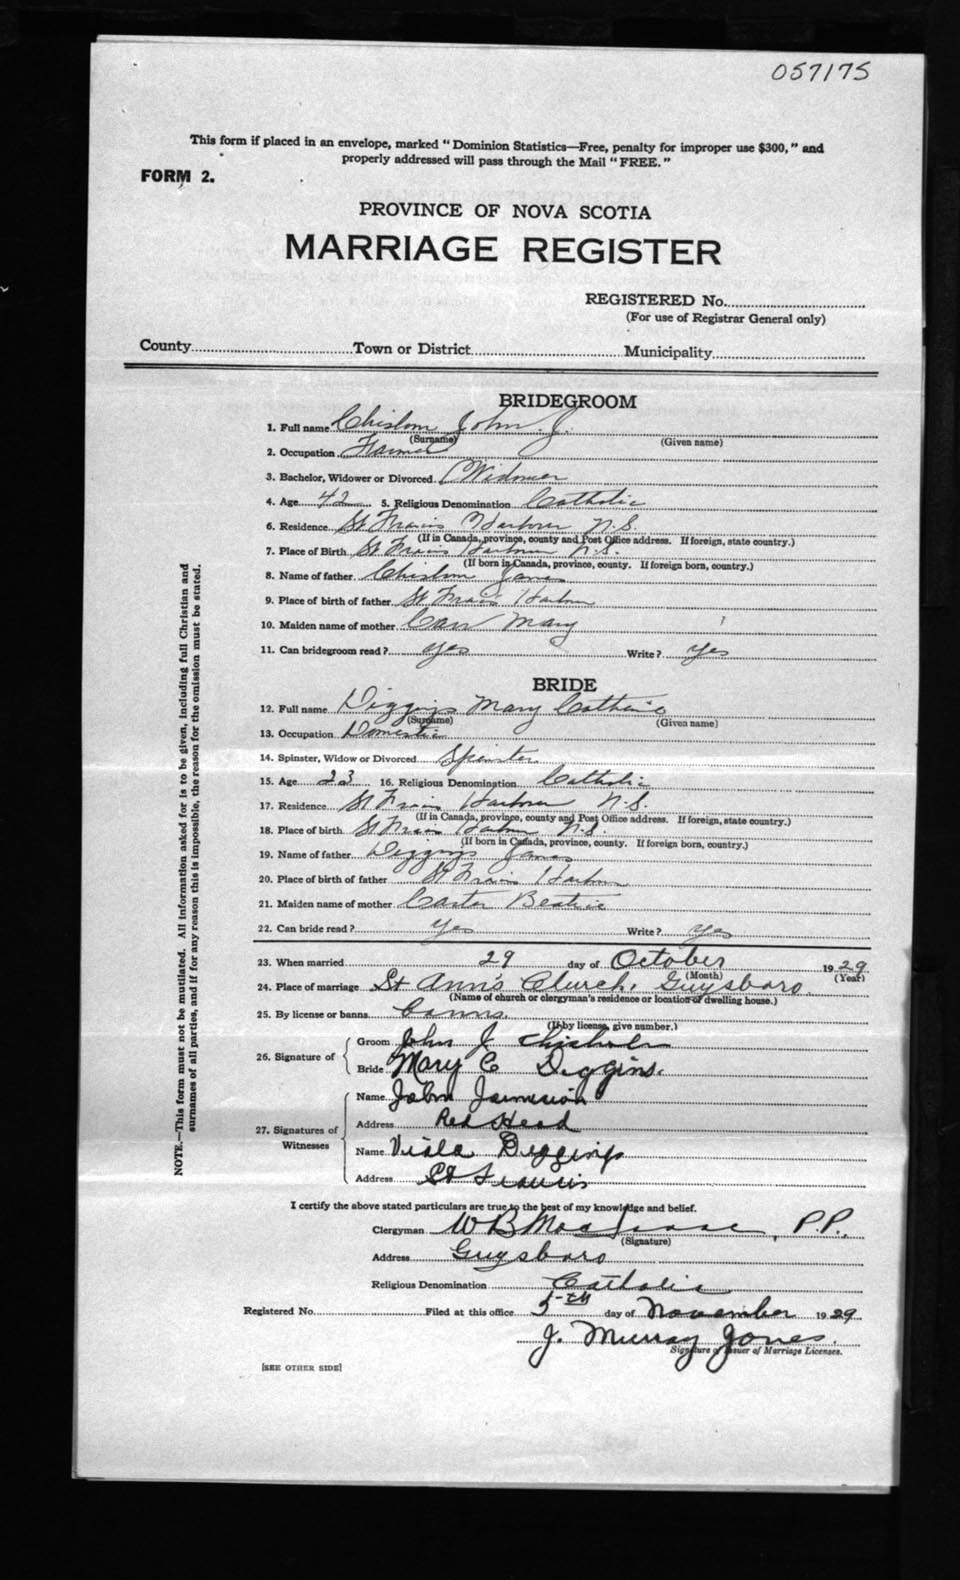 057175
This form if placed in an envelope, marked "Dominion Statistics—Free, penalty for improper use $300," and
properly addressed will pass through the Mail "FREE."
FORM 2.
PROVINCE OF NOVA SCOTIA
MARRIAGE REGISTER
REGISTERED No.
(For use of Registrar General only)
County Town or District Municipality
BRIDEGROOM
1. Full name Chisholm John. J.
(Surname) (Given name)
2. Occupation Farmer
3. Bachelor, Widower or Divorced Widower
4. Age 42 5. Religious Denomination Catholic
6. Residence St Francis Harbour N.S.
(If in Canada, province, county and Post Office address. If foreign, state country.)
7. Place of Birth St Francis Harbour N.S.
(If born in Canada, province, county. If foreign born, country.)
8. Name of father Chisholm James
9. Place of birth of father St Francis Harbour
10. Maiden name of mother Carr Mary
11. Can bridegroom read? yes Write? yes
BRIDE
12. Full name Diggins Mary Catherine
(Surname) (Given name)
13. Occupation Domestic
14. Spinster, Widow or Divorced Spinster
15. Age 23 16. Religious Denomination Catholic
17. Residence St Francis Harbour N.S.
(If in Canada, province, county and Post Office address. If foreign, state country.)
18. Place of birth St Francis Harbour N.S.
(If born in Canada, province, county. If foreign born, country.)
19. Name of father Diggins James
20. Place of birth of father St Francis Harbour
21. Maiden name of mother Carter Beatrice
22. Can bride read? Yes Write? yes
23. When married 29 day of October 1929
(Month) (Year)
24. Place of marriage St Ann's Church, Guysboro
(Name of church or clergyman's residence or location of dwelling house.)
25. By license or banns Banns.
(If by license, give number.)
26. Signature of Groom John J Chisholm
Bride Mary C Diggins.
27. Signatures of Witnesses
Name John Jamieson
Address Red Head
Name Viola Diggins
Address St Francis
I certify the above stated particulars are true to the best of my knowledge and belief.
Clergyman W B MacIsaac, P.P.
(Signature)
Address Guysboro
Religious Denomination Catholic
Registered No. Filed at this office 5th day of November 1929
J. Murray Jones.
Signature of Issuer of Marriage Licenses.
[SEE OTHER SIDE]
NOTE.—This form must not be mutilated. All information asked for is to be given, including full Christian and
surnames of all parties, and if for any reason this is impossible, the reason for the omission must be stated.